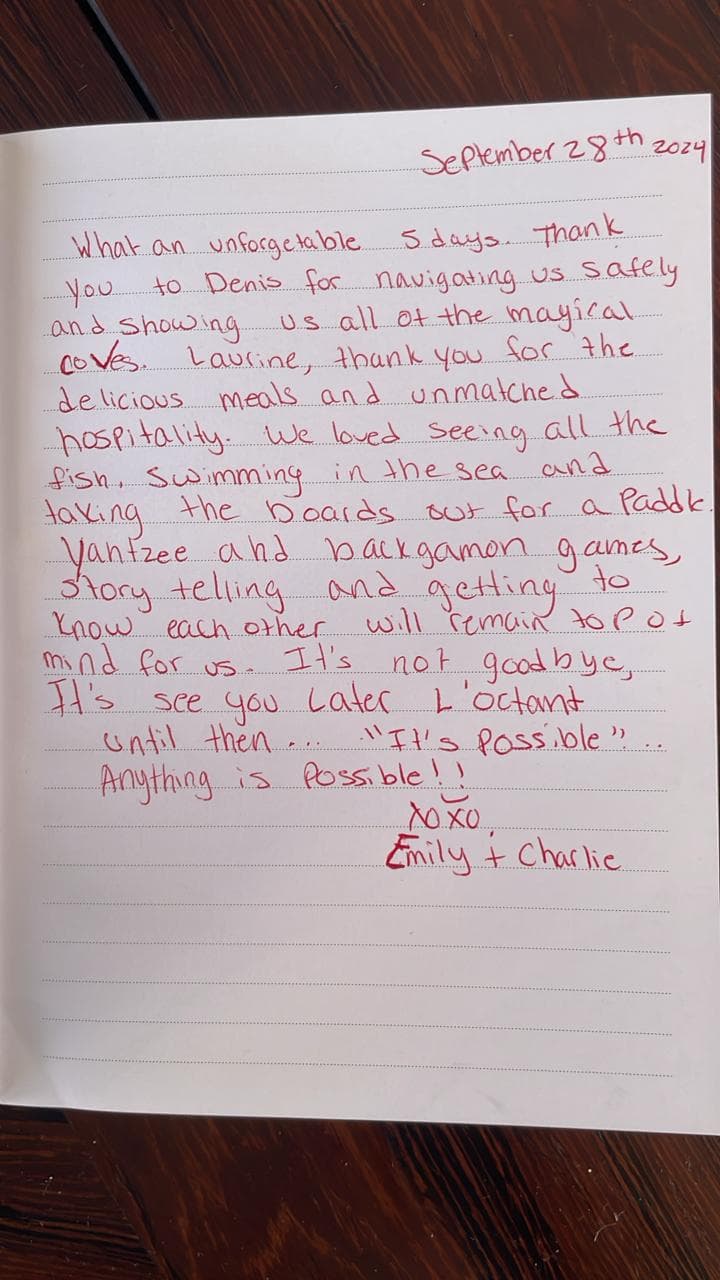 September 28th 2024
What an unforgetable 5 days. Thank
you to Denis for navigating us safely
and showing us all of the magical
coves. Laurine, thank you for the
delicious meals and unmatched
hospitality. We loved seeing all the
fish, swimming in the sea and
taking the boards out for a Paddle.
Yahtzee and backgamon games,
story telling and getting to
know each other will remain top of
mind for us. It's not goodbye,
It's see you later L'octant
until then... "It's possible"...
Anything is possible!!
XOXO
Emily + Charlie